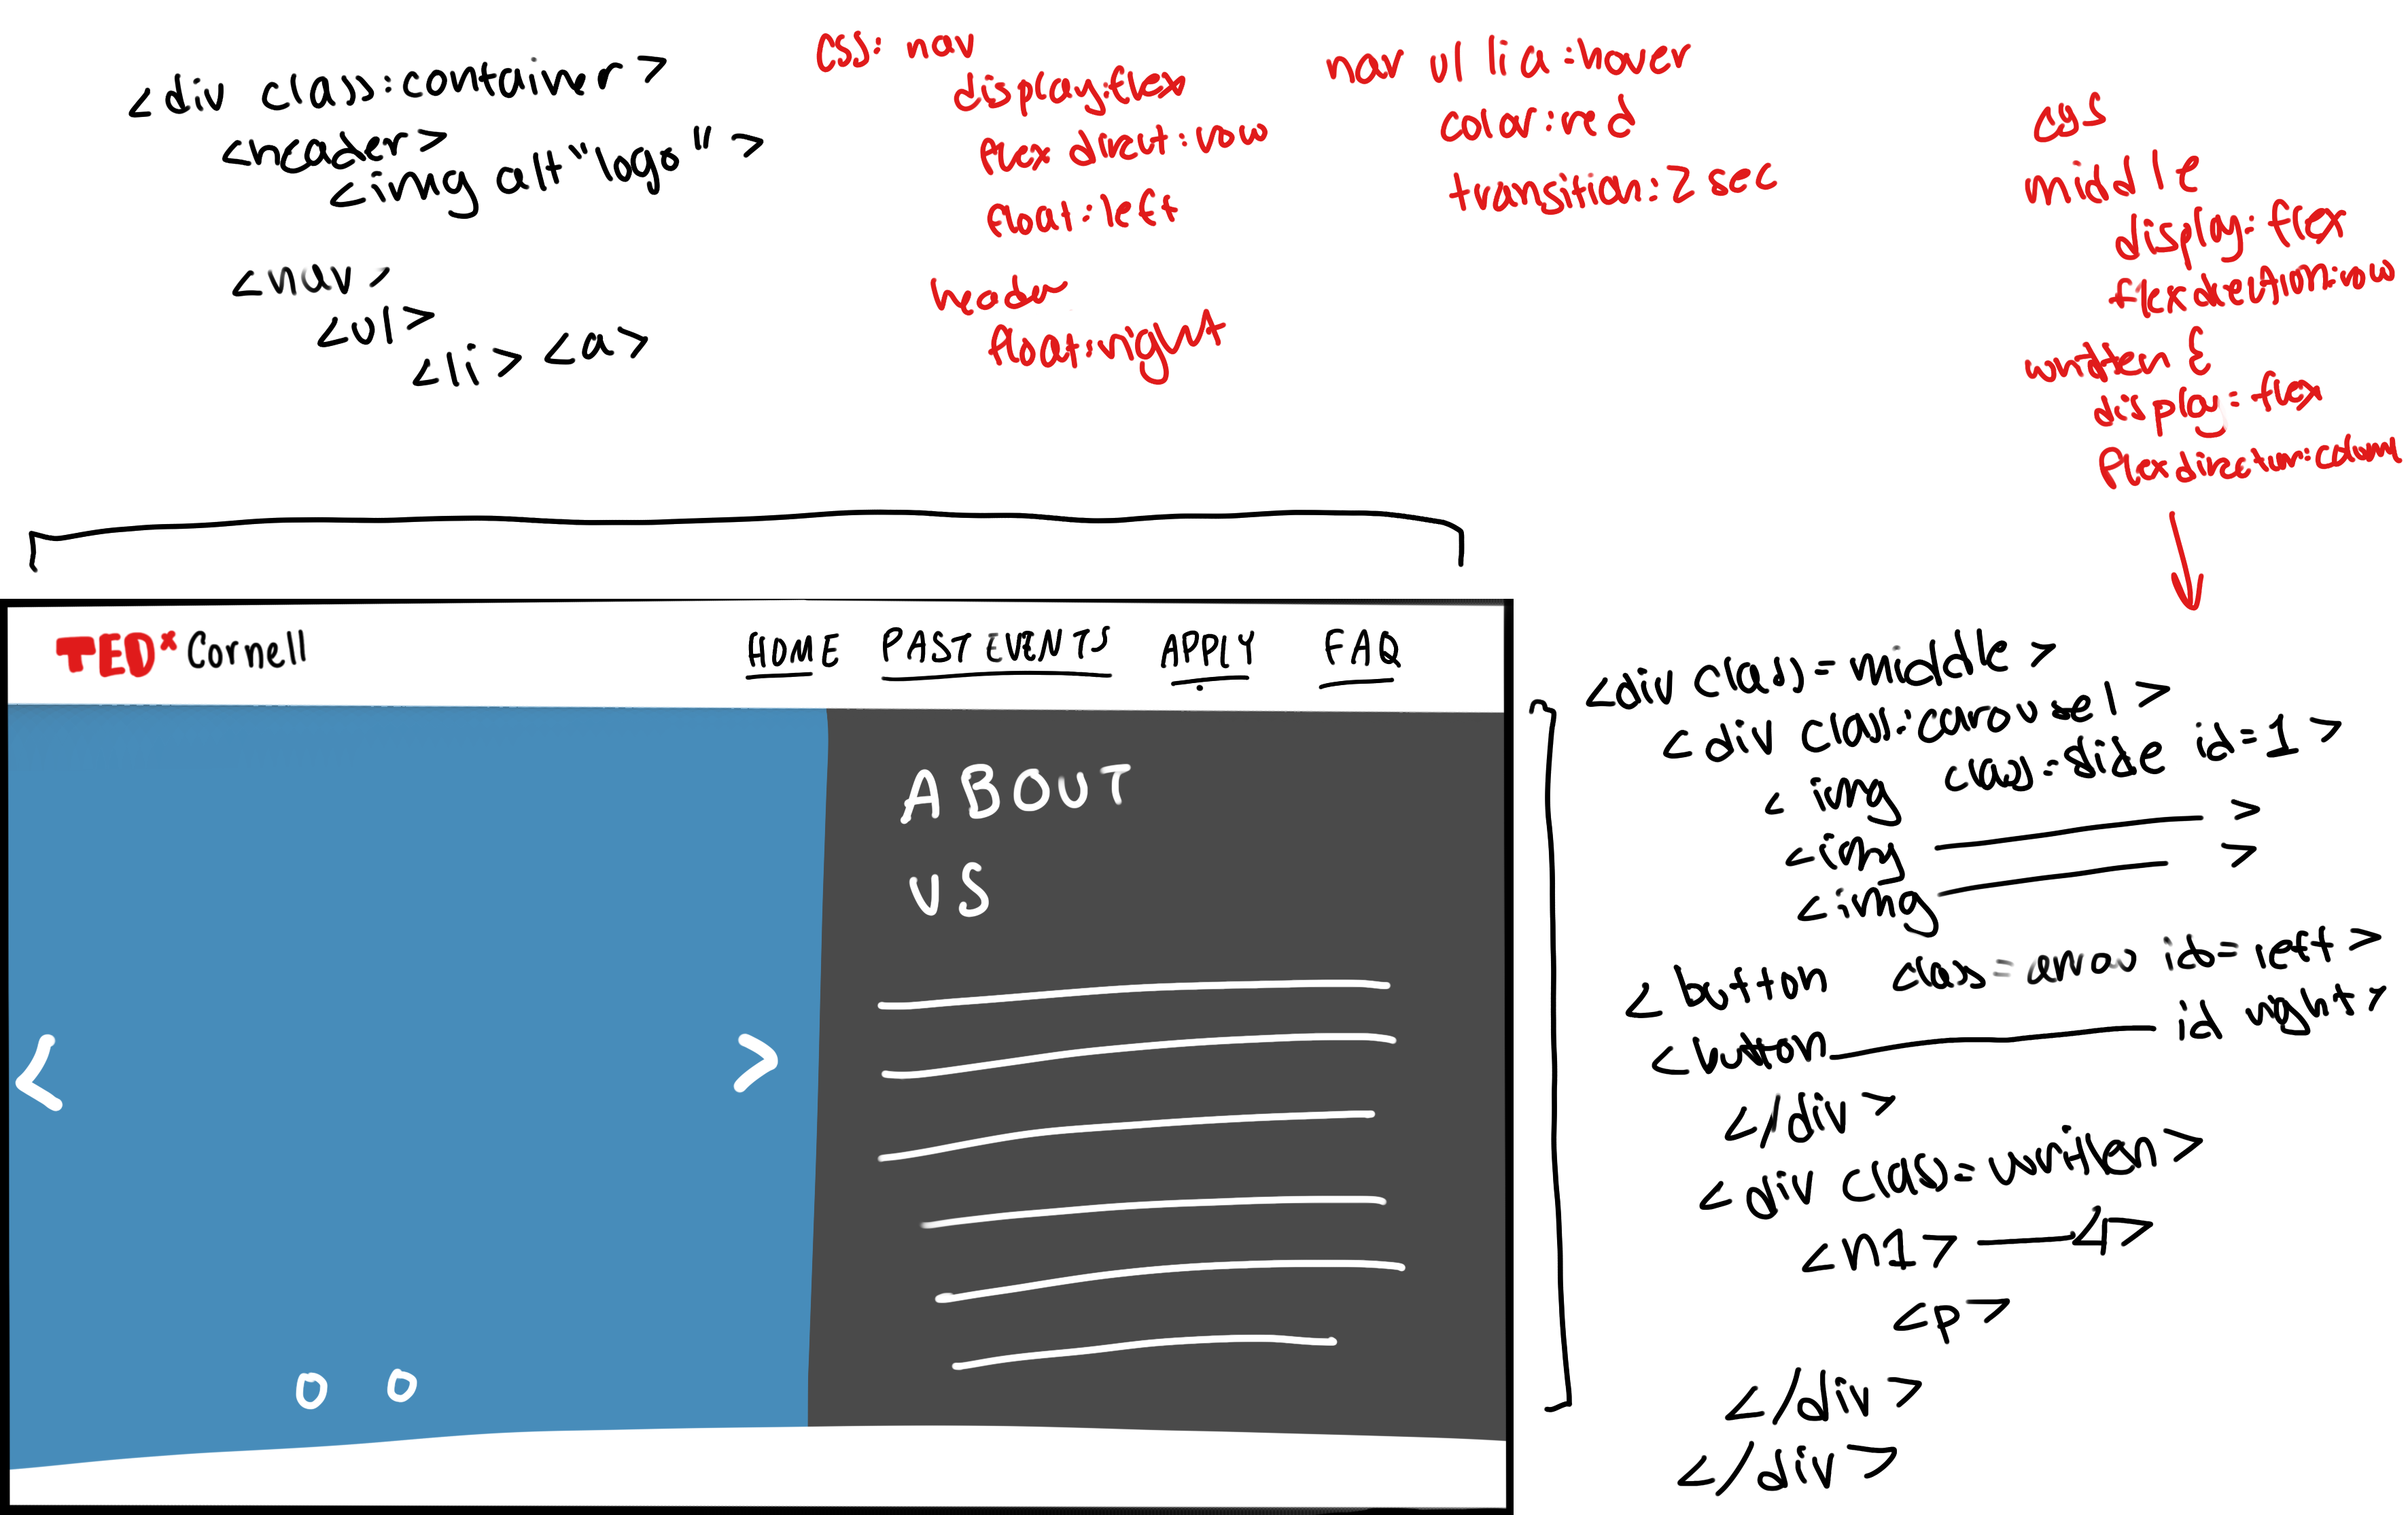 <div class:container>
<header>
<img alt"logo">
<nav>
<ul>
<li> <a>
css: nav
display:flex
flex direct: row
float: left
header
float:right
nav ul li a :hover
color: red
transition: 2 sec
middle
display: flex
flexdirection:row
written {
display: flex
flexdirection:column
TEDx Cornell
HOME PAST EVENTS APPLY FAQ
ABOUT
US
< >
<div class=middle>
<div class:carousel>
<img class=slide id=1>
<img >
<img >
<button class=arrow id=left>
<button id right>
</div>
<div class=written>
<h1>
<p>
</div>
</div>